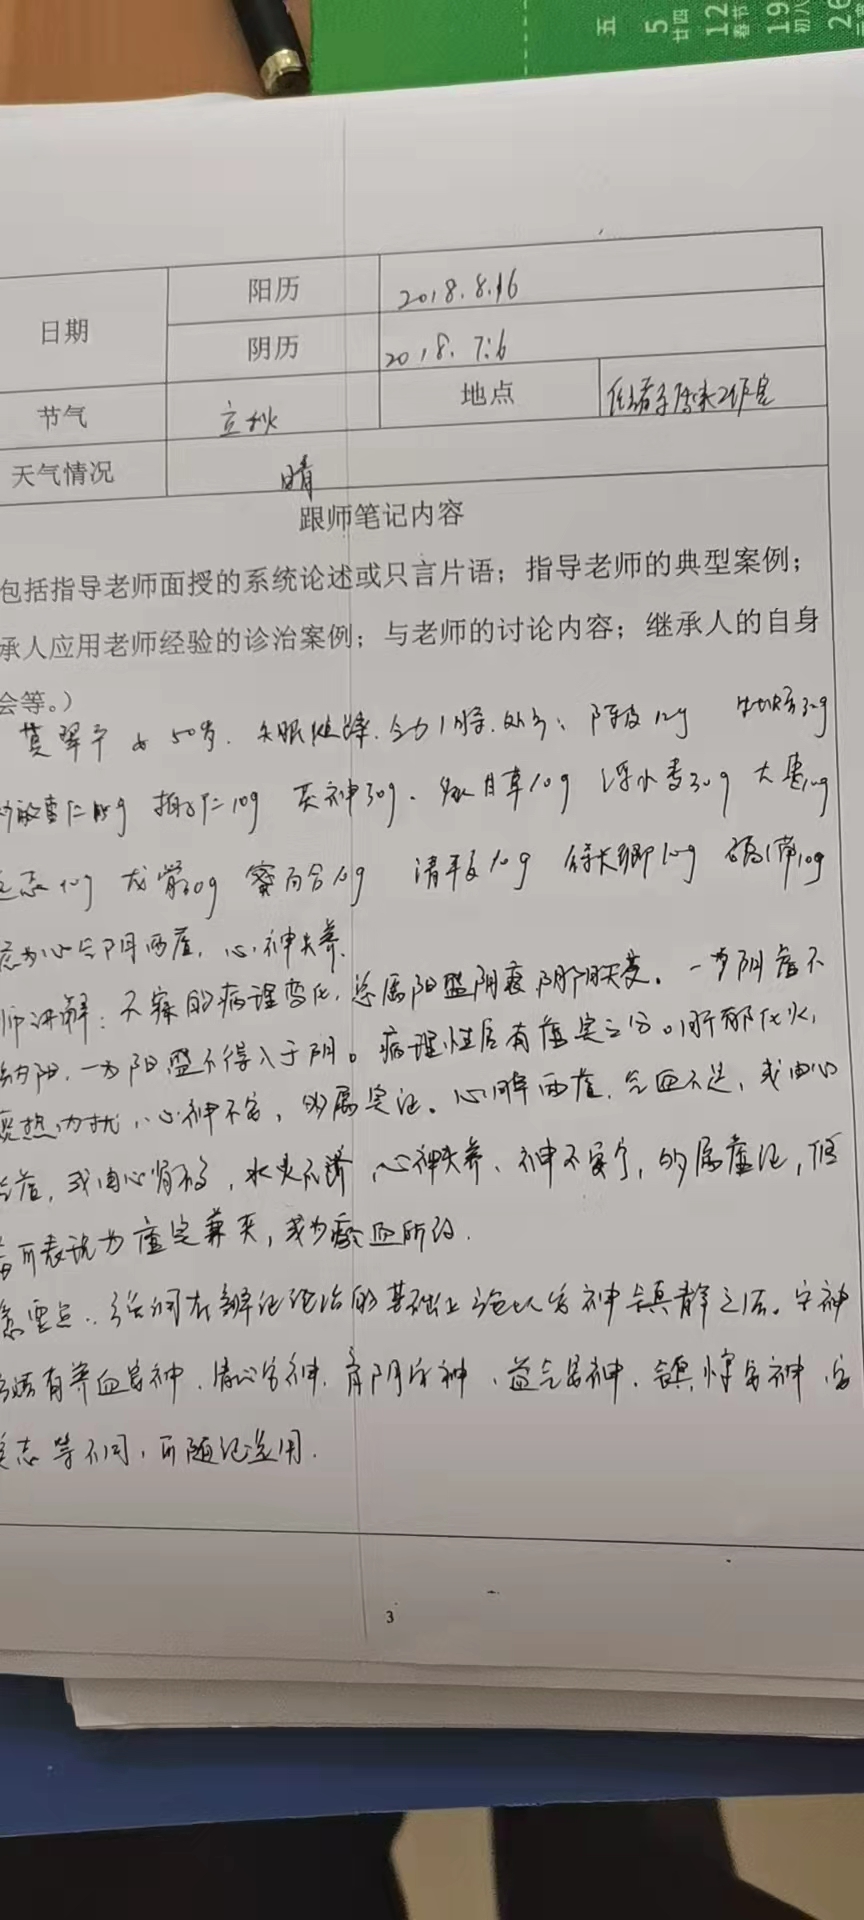 五
5 廿四
12 春节
19 初八
26
日期 阳历 2018.8.16
阴历 2018.7.6
节气 立秋 地点 传承工作室
天气情况 晴
跟师笔记内容
包括指导老师面授的系统论述或只言片语；指导老师的典型案例；
承人应用老师经验的诊治案例；与老师的讨论内容；继承人的自身
会等。）
女 50岁. 失眠 乏力 处方：陈皮 10g 30g
酸枣仁 15g 柏子仁 10g 茯神 30g. 甘草 10g 浮小麦 30g 大枣 10g
志 10g 龙骨 30g 蜜百合 10g 清半夏 10g 徐长卿 10g 10g
为心气阴两虚, 心神失养.
师讲解：不寐的病理变化, 总属阳盛阴衰, 阴阳失交。一为阴虚不
纳阳, 一为阳盛不得入于阴。病理性质有虚实之分。肝郁化火,
热内扰, 心神不安, 属实证。心脾两虚, 气血不足, 或由心
虚, 或由心肾不交, 水火不济, 心神失养、神不安宁, 属虚证, 但
可表现为虚实兼夹, 或为瘀血所致.
重点：强调在辨证论治的基础上 安神镇静之法。安神
有养血安神、清心安神、育阴安神、益气安神、镇惊安神、安
志等不同, 可随证选用.
3